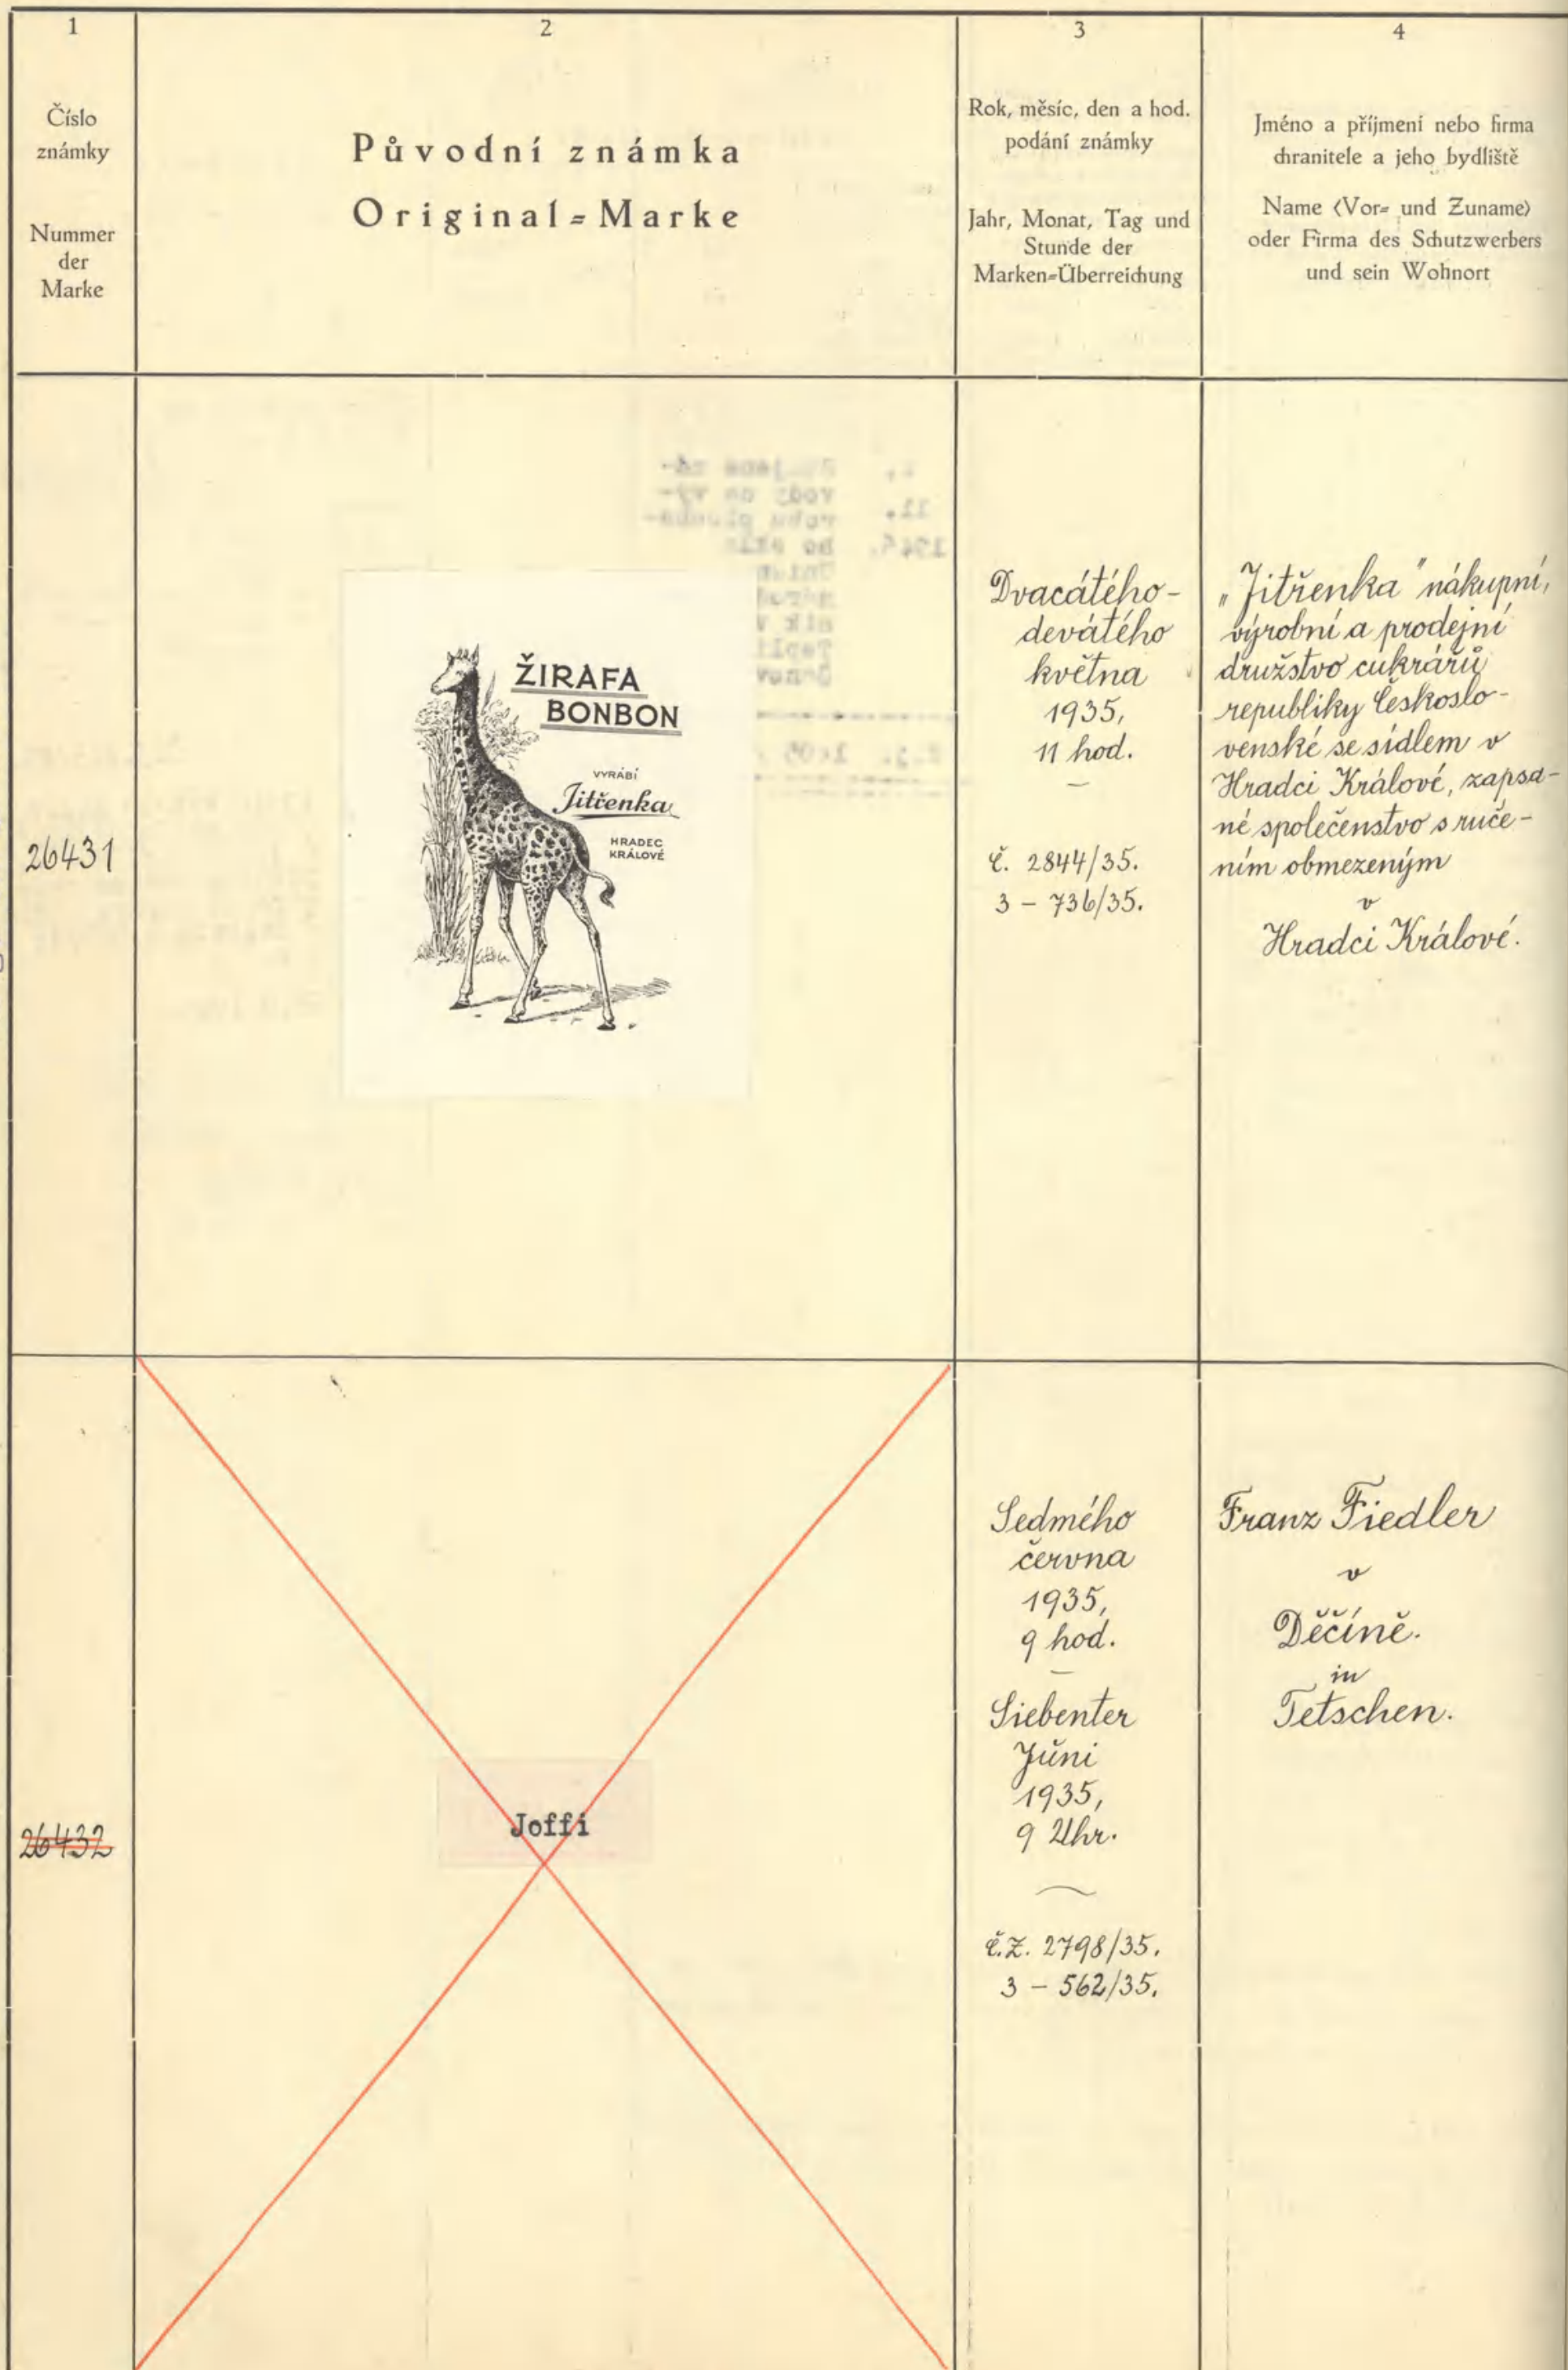 1
2
3
4
Číslo
známky
Nummer
der
Marke
Původní známka
Original=Marke
Rok, měsíc, den a hod.
podání známky
Jahr, Monat, Tag und
Stunde der
Marken=Überreichung
Jméno a příjmení nebo firma
chranitele a jeho bydliště
Name (Vor= und Zuname)
oder Firma des Schutzwerbers
und sein Wohnort
26431
ŽIRAFA
BONBON
VYRÁBÍ
Jitřenka
HRADEC
KRÁLOVÉ
Dvacátého-
devátého
května
1935,
11 hod.
č. 2844/35.
3 - 736/35.
„Jitřenka" nákupní,
výrobní a prodejní
družstvo cukrářů
republiky Českoslo-
venské se sídlem v
Hradci Králové, zapsa-
né společenstvo s ruče-
ním obmezeným
v
Hradci Králové.
26432
Joffi
Sedmého
června
1935,
9 hod.
Siebenter
Juni
1935,
9 Uhr.
č.Z. 2798/35.
3 - 562/35.
Franz Fiedler
v
Děčíně.
in
Tetschen.